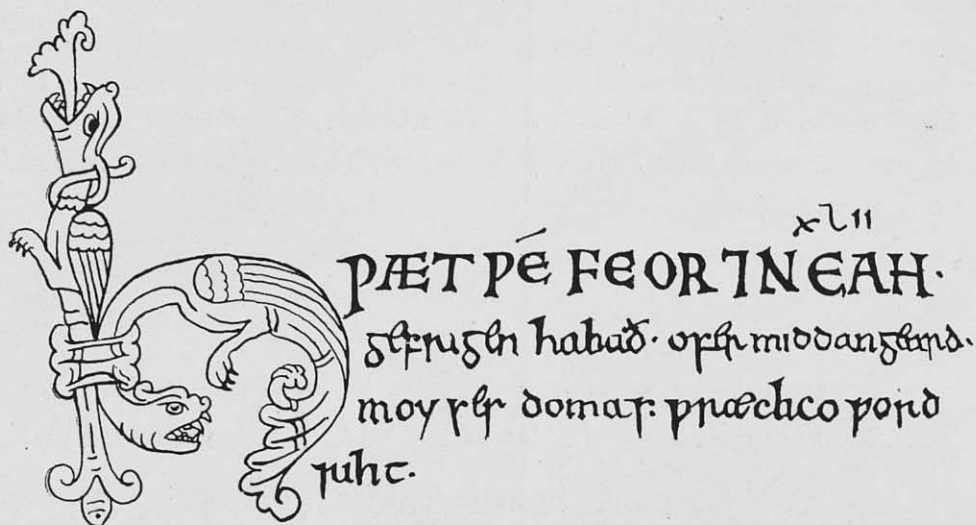 xlii
HǷÆT ǷÉ FEOR ⁊NEAH·
gefrigen habað· ofer middangeard·
moyses domas· ƿræclico ƿord
riht·